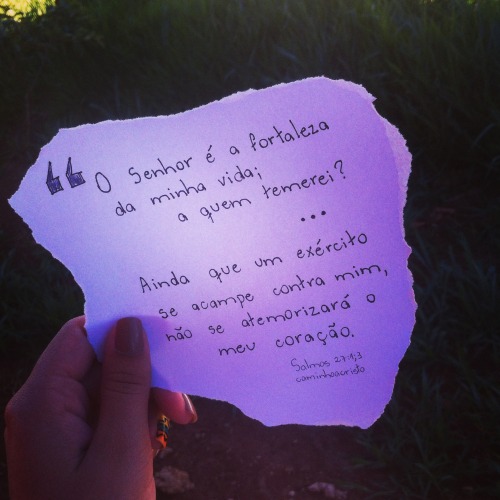 “ O Senhor é a fortaleza
da minha vida;
a quem temerei?
...
Ainda que um exército
se acampe contra mim,
não se atemorizará o
meu coração.
Salmos 27:1;3
caminhoacristo